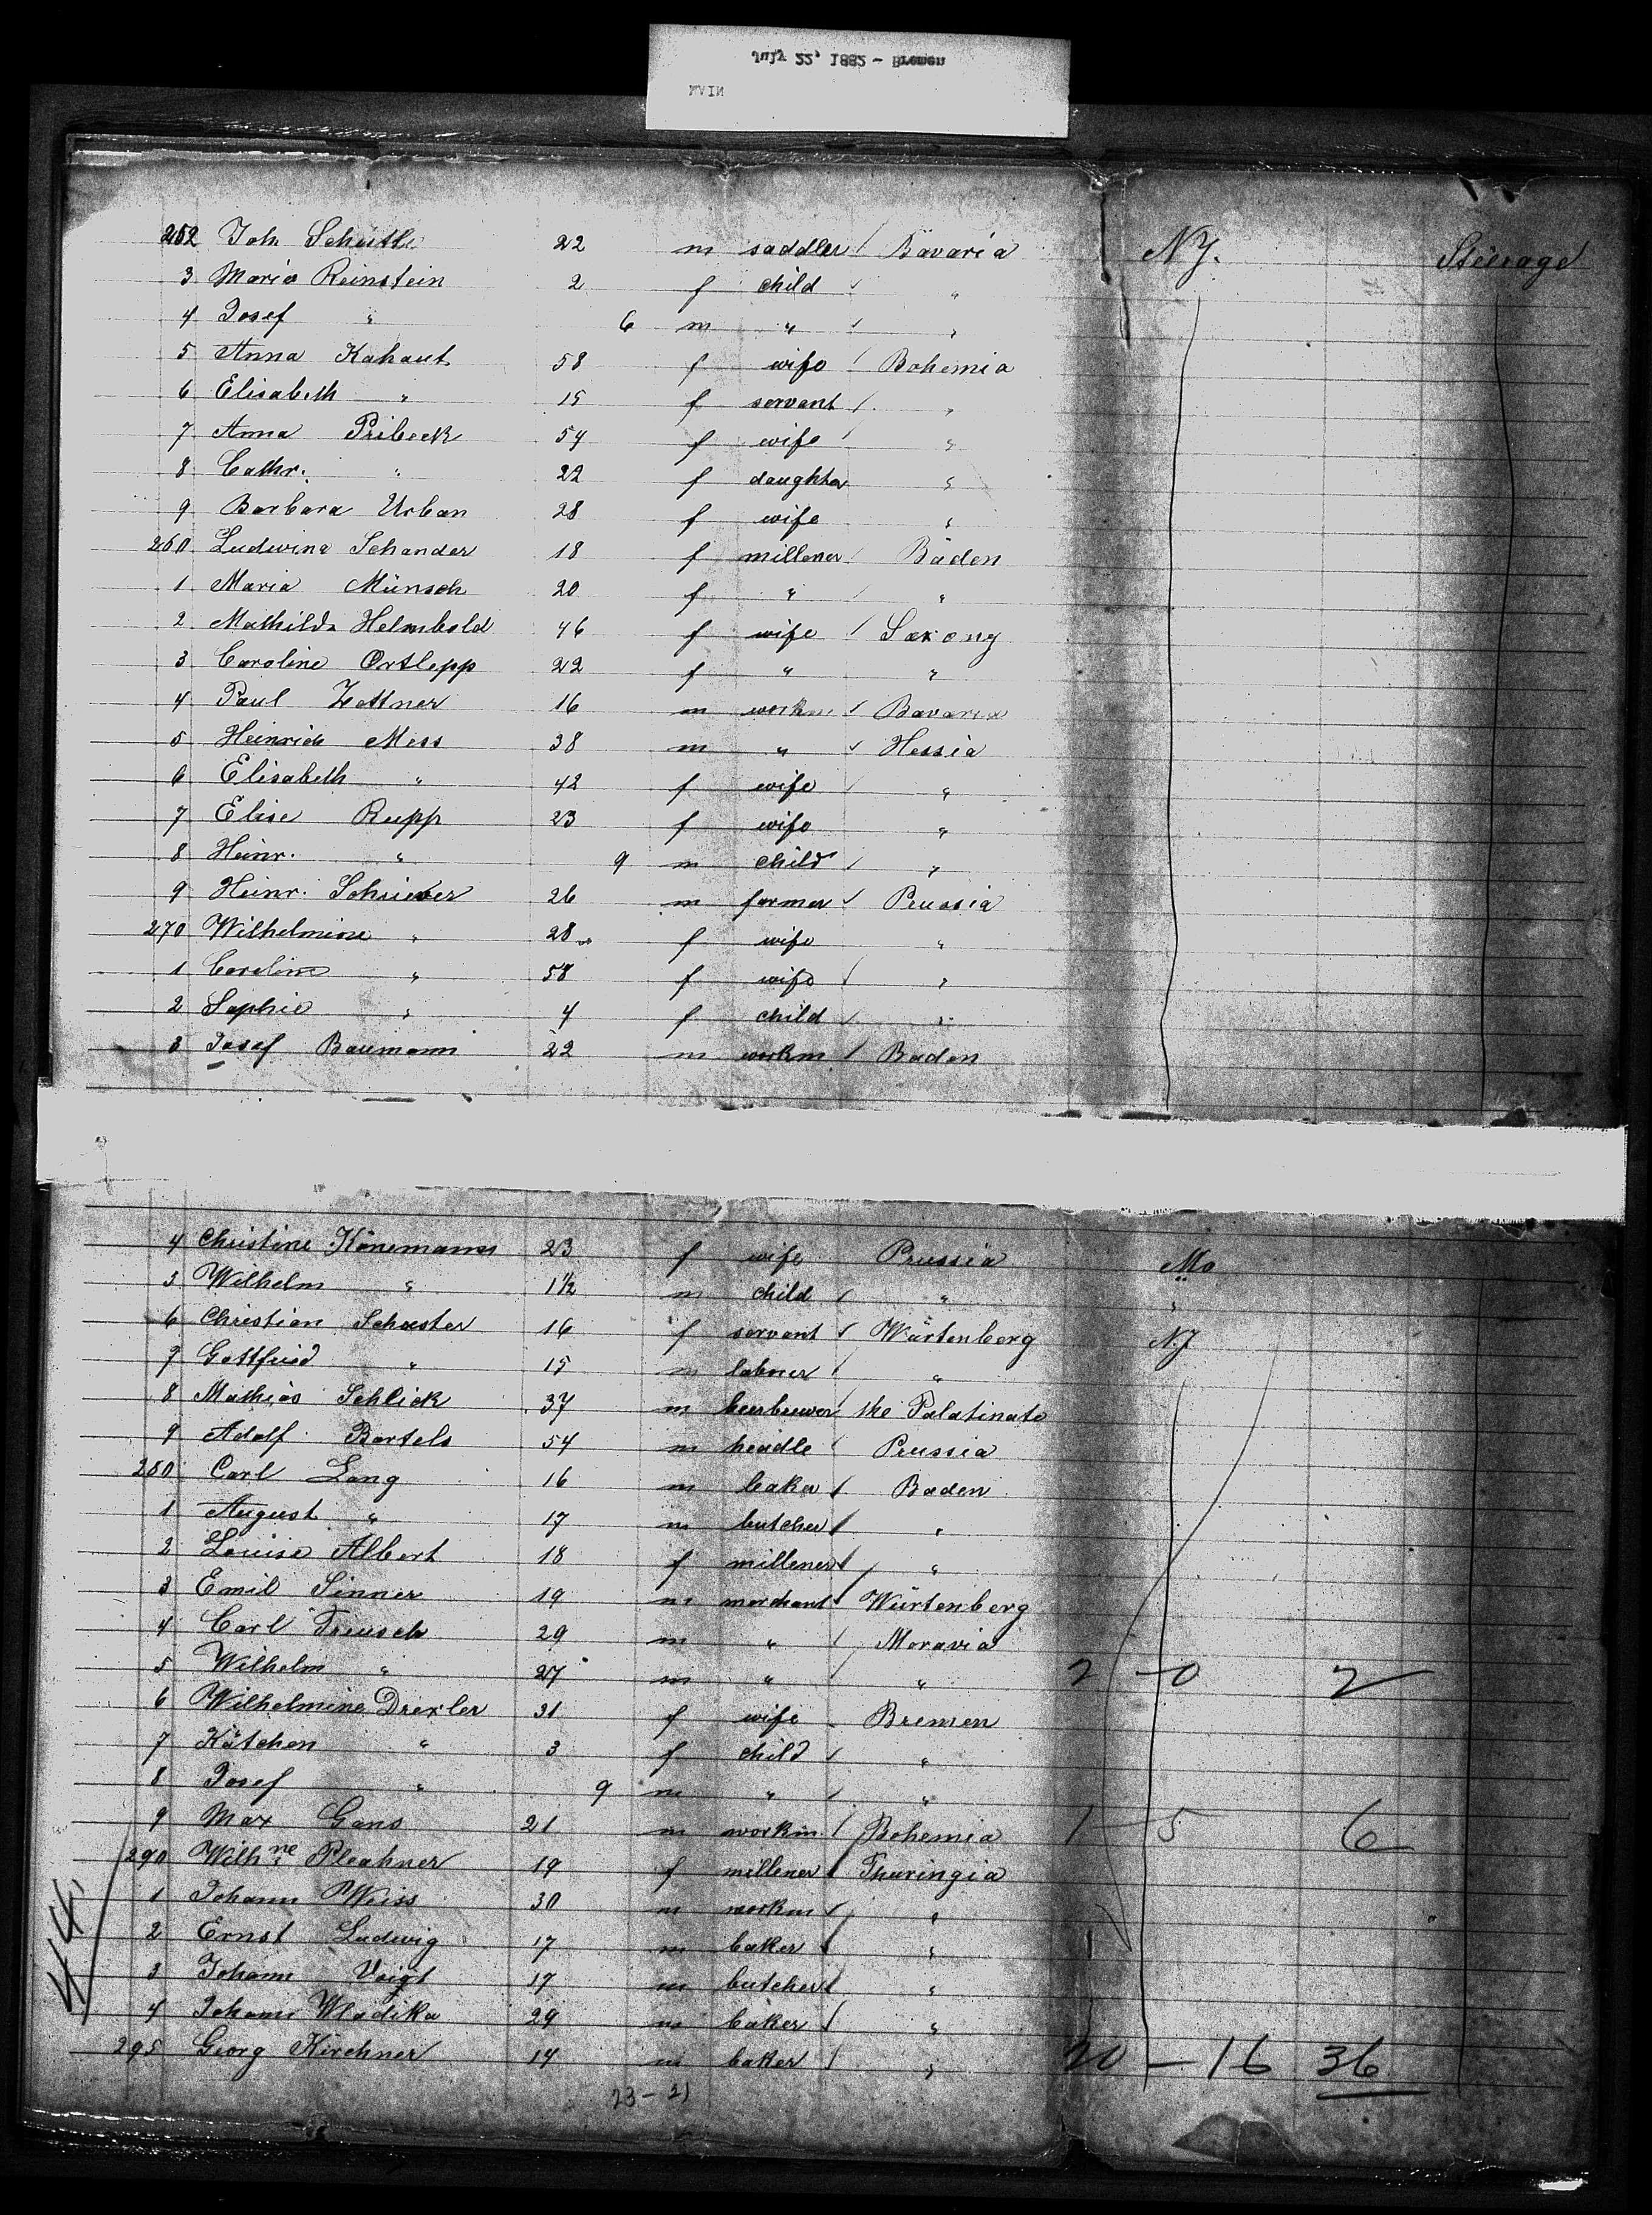 July 22, 1882 - Bremen
MAIN
252 Joh Schüttle 22 m saddler / Bavaria N.Y. Steerage
3 Maria Reinstein 2 f child / "
4 Josef " 6 m " / "
5 Anna Kahaut 58 f wife / Bohemia
6 Elisabeth " 15 f servant / "
7 Anna Pribeck 54 f wife / "
8 Cathr. " 22 f daughter "
9 Barbara Urban 28 f wife "
260 Ludwina Schander 18 f millener / Baden
1 Maria Münsch 20 f " / "
2 Mathilda Helmbold 46 f wife / Saxony
3 Caroline Ortlepp 22 f " "
4 Paul Zottner 16 m workm / Bavaria
5 Heinrich Mess 38 m " / Hessia
6 Elisabeth " 42 f wife / "
7 Elise Rupp 23 f wife "
8 Heinr. " 9 m child / "
9 Heinr. Schriever 26 m farmer / Prussia
270 Wilhelmine " 28 f wife "
1 Caroline " 58 f wife / "
2 Sophie " 4 f child / "
3 Josef Baumann 22 m workm / Baden
4 Christine Könemann 23 f wife Prussia Mo
5 Wilhelm " 1 1/2 m child / " "
6 Christian Schuster 16 f servant / Würtenberg N.Y
7 Gottfried " 15 m laborer / "
8 Mathias Schlick 37 m beerbrewer / the Palatinate
9 Adolf Bartels 54 m headle / Prussia
280 Carl Lang 16 m baker / Baden
1 August " 17 m butcher / "
2 Louise Albert 18 f millener / "
3 Emil Sinner 19 m merchant / Würtenberg
4 Carl Freusch 29 m " / Moravia
5 Wilhelm " 27 m " / " 2 - 0 2
6 Wilhelmine Drexler 31 f wife Bremen
7 Kätchen " 3 f child / "
8 Josef " 9 m " / "
9 Max Gans 21 m workm. / Bohemia 1 - 5 6
290 Wilhne Pleahner 19 f millener / Thuringia
1 Johann Weiss 30 m workm / "
2 Ernst Ludwig 17 m baker / "
3 Johann Voigt 17 m butcher / "
4 Johann Wladika 29 m baker / "
295 Georg Kirchner 14 m baker / " 20 - 16 36
23 - 21
44.